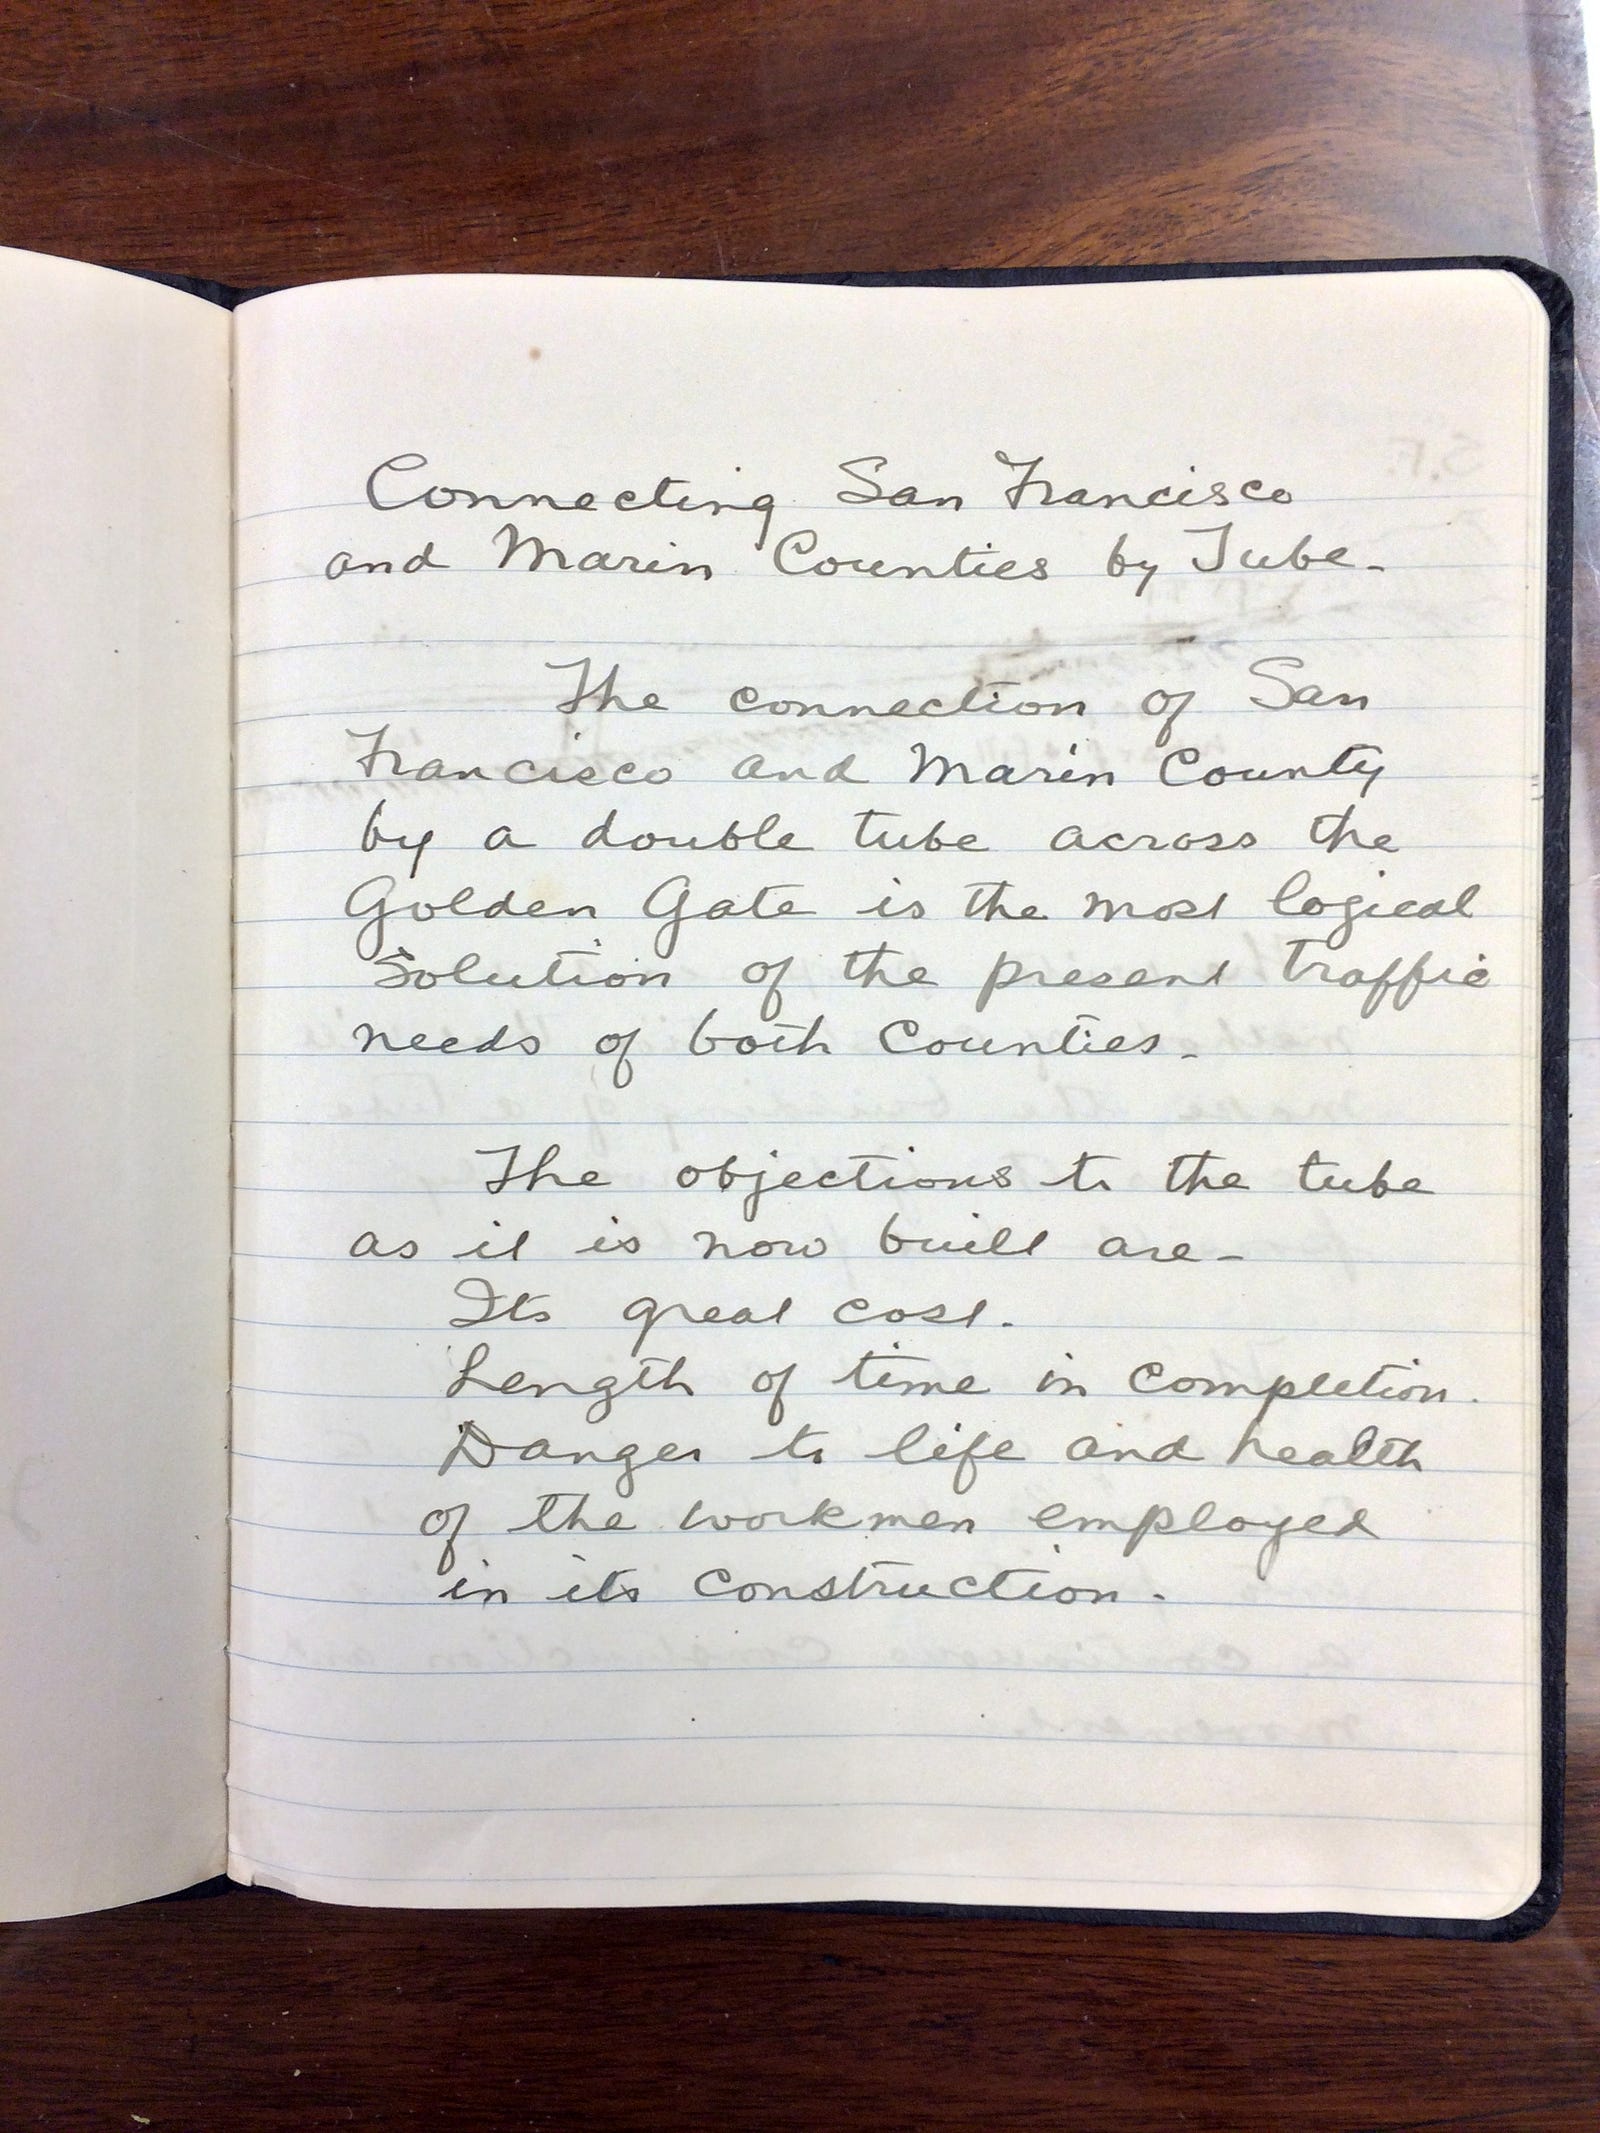 Connecting San Francisco
and Marin Counties by Tube.
The connection of San
Francisco and Marin County
by a double tube across the
Golden Gate is the most logical
Solution of the present traffic
needs of both Counties.
The objections to the tube
as it is now built are -
Its great cost.
Length of time in completion.
Danger to life and health
of the workmen employed
in its construction.